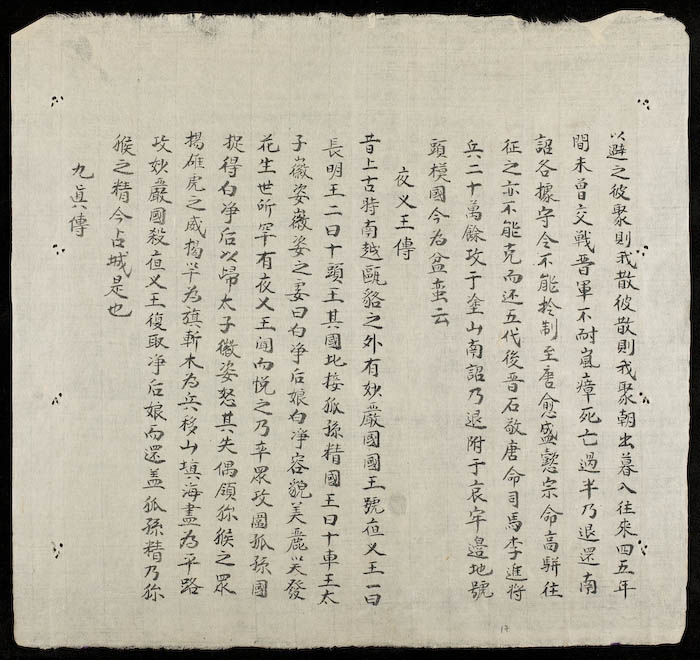 以避之彼聚則我散彼散則我聚朝出暮入往來四五年
間未曾交戰晋軍不耐嵐瘴死亡過半乃退還南
詔各據守令不能拴制至唐愈盛懿宗命高駢往
征之亦不能克而还五代後晋石敬唐命司馬李進将
兵二十萬餘攻于塗山南詔乃退附于哀牢邉地號
頭模國今為盆蛮云
夜义王傳
昔上古時南越甌貉之外有妙嚴國國王號夜义王一曰
長明王二曰十頭王其國北接狐孫精國王曰十車王太
子徽姿薇姿之妻曰白净后娘白凈容貌美麗笑發
花生世所罕有夜义王闻而悦之乃率眾攻圖狐孫國
捉得白净后以歸太子徽姿怒其失偶領猕猴之眾
揚雄虎之威揭竿為旗斬木為兵移山填海盡為平路
攻妙嚴國殺夜义王復取净后娘而還盖狐孫精乃猕
猴之精今占城是也
九真傳
17